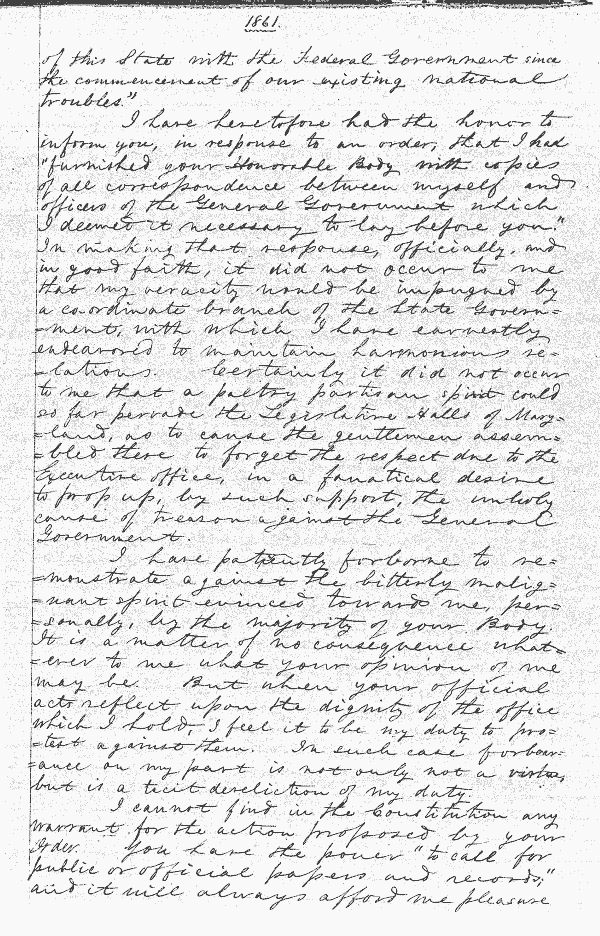 1861.
of this State with the Federal Government since
the commencement of our existing national
troubles."
I have heretofore had the honor to
inform you, in response to an order, that I had
"furnished your Honorable Body with copies
of all correspondence between myself and
officers of the General Government which
I deemed it necessary to lay before you."
In making that response, officially, and
in good faith, it did not occur to me
that my veracity would be impugned by
a co-ordinate branch of the State Govern=
=ment, with which I have earnestly
endeavored to maintain harmonious re=
=lations. Certainly it did not occur
to me that a paltry partisan spirit could
so far pervade the Legislative Halls of Mary=
=land, as to cause the gentlemen assem=
=bled there to forget the respect due to the
Executive office, in a fanatical desire
to prop up, by such support, the unholy
cause of treason against the General
Government.
I have patiently forborne to re=
=monstrate against the bitterly malig=
=nant spirit evinced towards me, per=
=sonally, by the majority of your Body.
It is a matter of no consequence what=
=ever to me what your opinion of me
may be. But when your official
acts reflect upon the dignity of the office
which I hold, I feel it to be my duty to pro=
=test against them. In such case forbear=
=ance on my part is not only not a virtue,
but is a ticit dereliction of my duty.
I cannot find in the Constitution any
warrant for the action proposed by your
Order. You have the power "to call for
public or official papers and records;"
and it will always afford me pleasure